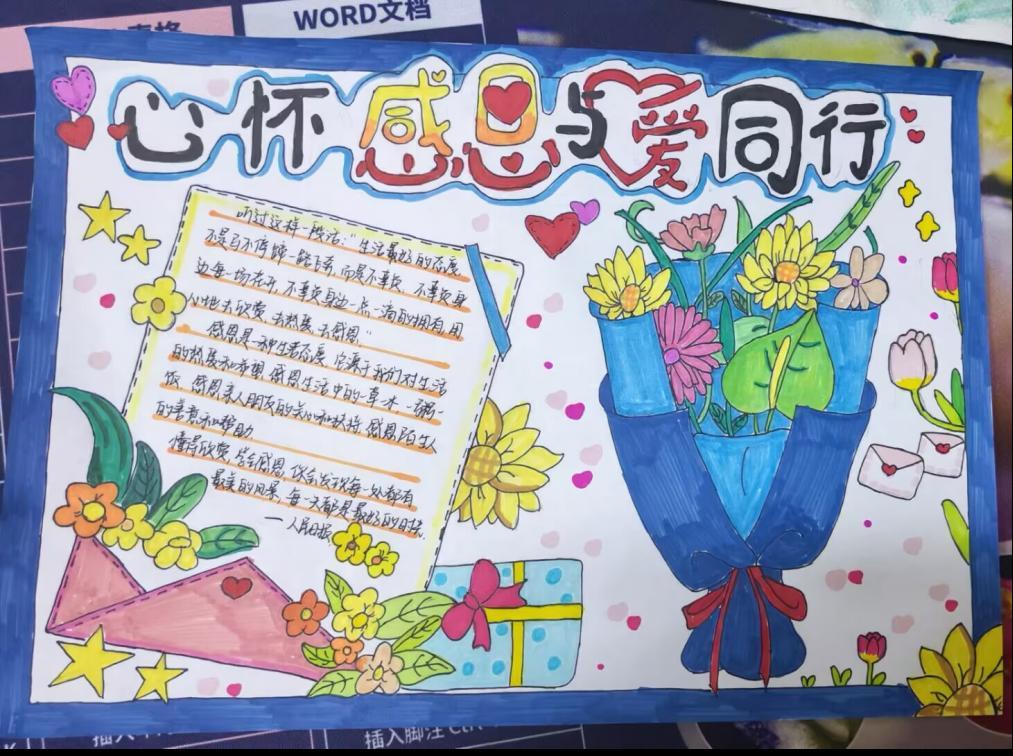 表格
WORD文档
心怀感恩与爱同行
听过这样一段话："生活最好的态度
不是马不停蹄一路飞奔,而是不辜负,不辜负身
边每一场花开,不辜负身边一点一滴的拥有,用
心地去欣赏,去热爱,去感恩"
感恩是一种生活态度,它源于我们对生活
的热爱和希望,感恩生活中的一草一木,一粥一
饭,感恩亲人朋友的关心和扶持,感恩陌生人
的善意和帮助
懂得欣赏,学会感恩,你会发现每一处都有
最美的风景,每一天都是最好的时操.
—人民日报
插入
插入脚注 Ctrl